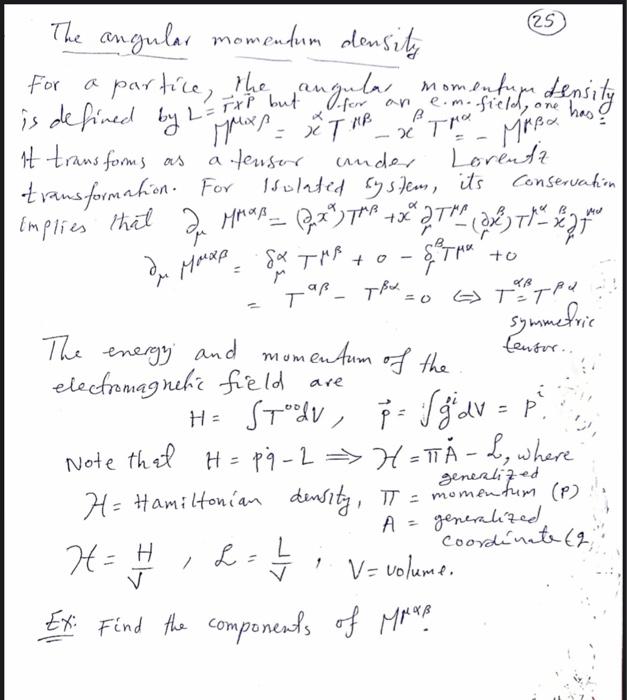 25
The angular momentum density
For a partice, the angular momentum density
is defined by L = r⃗×P⃗ but for an e.m. field, one has:
M^{μαβ} = x^α T^{μβ} - x^β T^{μα} = - M^{μβα}
It transforms as a tensor under Lorentz
transformation. For Isolated system, its conservation
implies that ∂_μ M^{μαβ} = (∂_μ x^α) T^{μβ} + x^α ∂_μ T^{μβ} - (∂_μ x^β) T^{μα} - x^β ∂_μ T^{μα}
∂_μ M^{μαβ} = δ^α_μ T^{μβ} + 0 - δ^β_μ T^{μα} + 0
= T^{αβ} - T^{βα} = 0 ⇔ T^{αβ} = T^{βα}
symmetric
tensor..
The energy and momentum of the
electromagnetic field are
H = ∫T^{00}dV, p⃗ = ∫g^i dV = p^i.
Note that H = pq̇ - L ⟹ ℋ = ΠȦ - ℒ, where
ℋ = Hamiltonian density, Π = generalized momentum (P)
A = generalized
coordinate (q
ℋ = H/V , ℒ = L/V ; V = volume.
Ex: Find the components of M^{μαβ}?